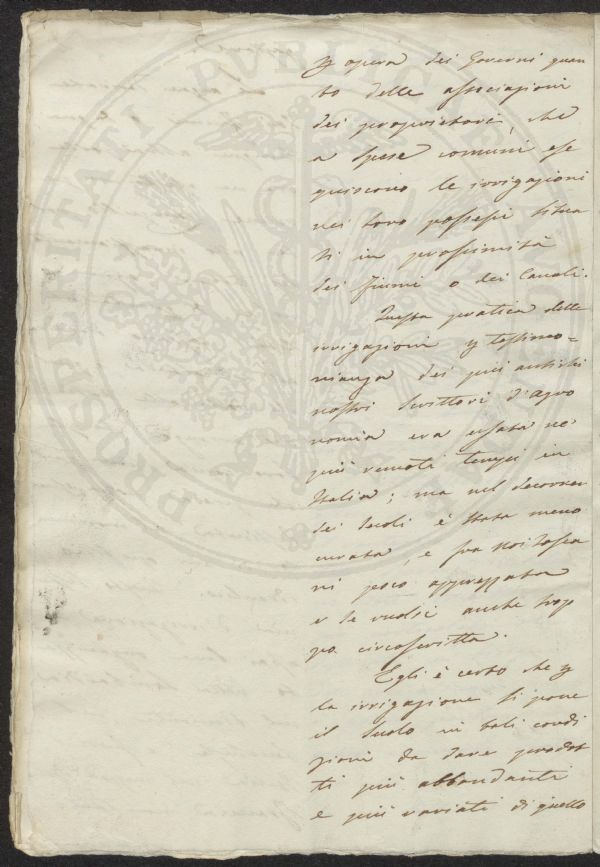 PROSPERITATI PUBLICAE
p opera dei Governi quan
to delle associazioni
dei proprietarj, che
a spese comuni ese
guiscono le irrigazioni
nei loro possessi situa
ti in prossimità
dei fiumi o dei Canali.
Questa pratica delle
irrigazioni p testimo=
nianza dei più antichi
nostri Scrittori d'Agro
nomia era usata ne
più remoti tempi in
Italia; ma nel decorso
dei secoli è stata meno
curata, e fra noi Tosca
ni poco apprezzata
e se vuolsi anche trop
po circoscritta.
Egli è certo che p
la irrigazione si pone
il suolo in tali condi
zioni da dare prodot
ti più abbondanti
e più variati di quello